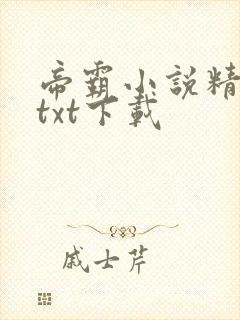 帝霸小說精
txt下載
戚士芹